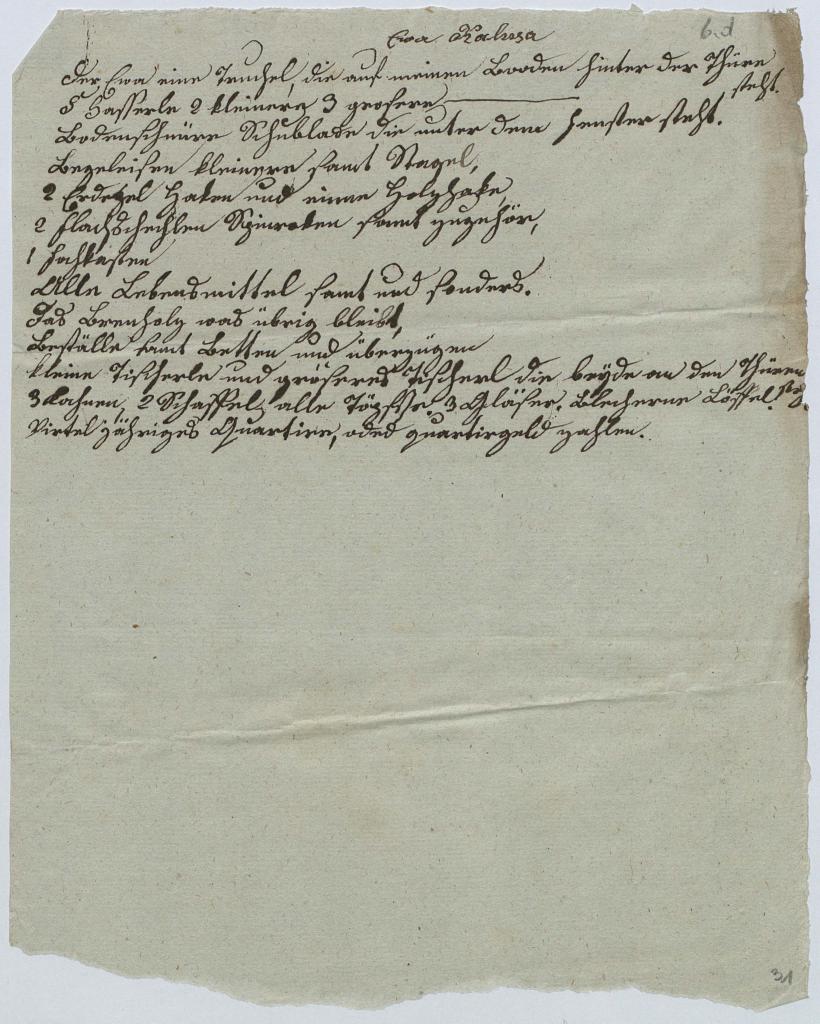 Ewa Kalusa
b.d
Der Ewa eine Truchel, die auf meinen Booden hinter der Thüre
steht.
5 Hasserle 2 kleinere 3 grosere
Bodenschnüre Schublade die unter dem Fenster steht.
Begeleisen kleinere samt Stagel,
2 Erdegel Haken und einne Holzhake,
2 Flachshechlen Spinroken samt zugehör,
1 Fachkasten
Alle Lebensmittel samt und sonders.
Das Brenholz was übrig bleibt,
Beställe samt Betten und überzügen
kleine Tischerle und gröseres Tischerl die beyde an den Thüren
3 Kahnen, 2 Schaffel, alle Töpffe. 3 Gläser, Blecherne Löffel.
Virtel jähriges Quartier, oded quartirgeld zahlen.
31